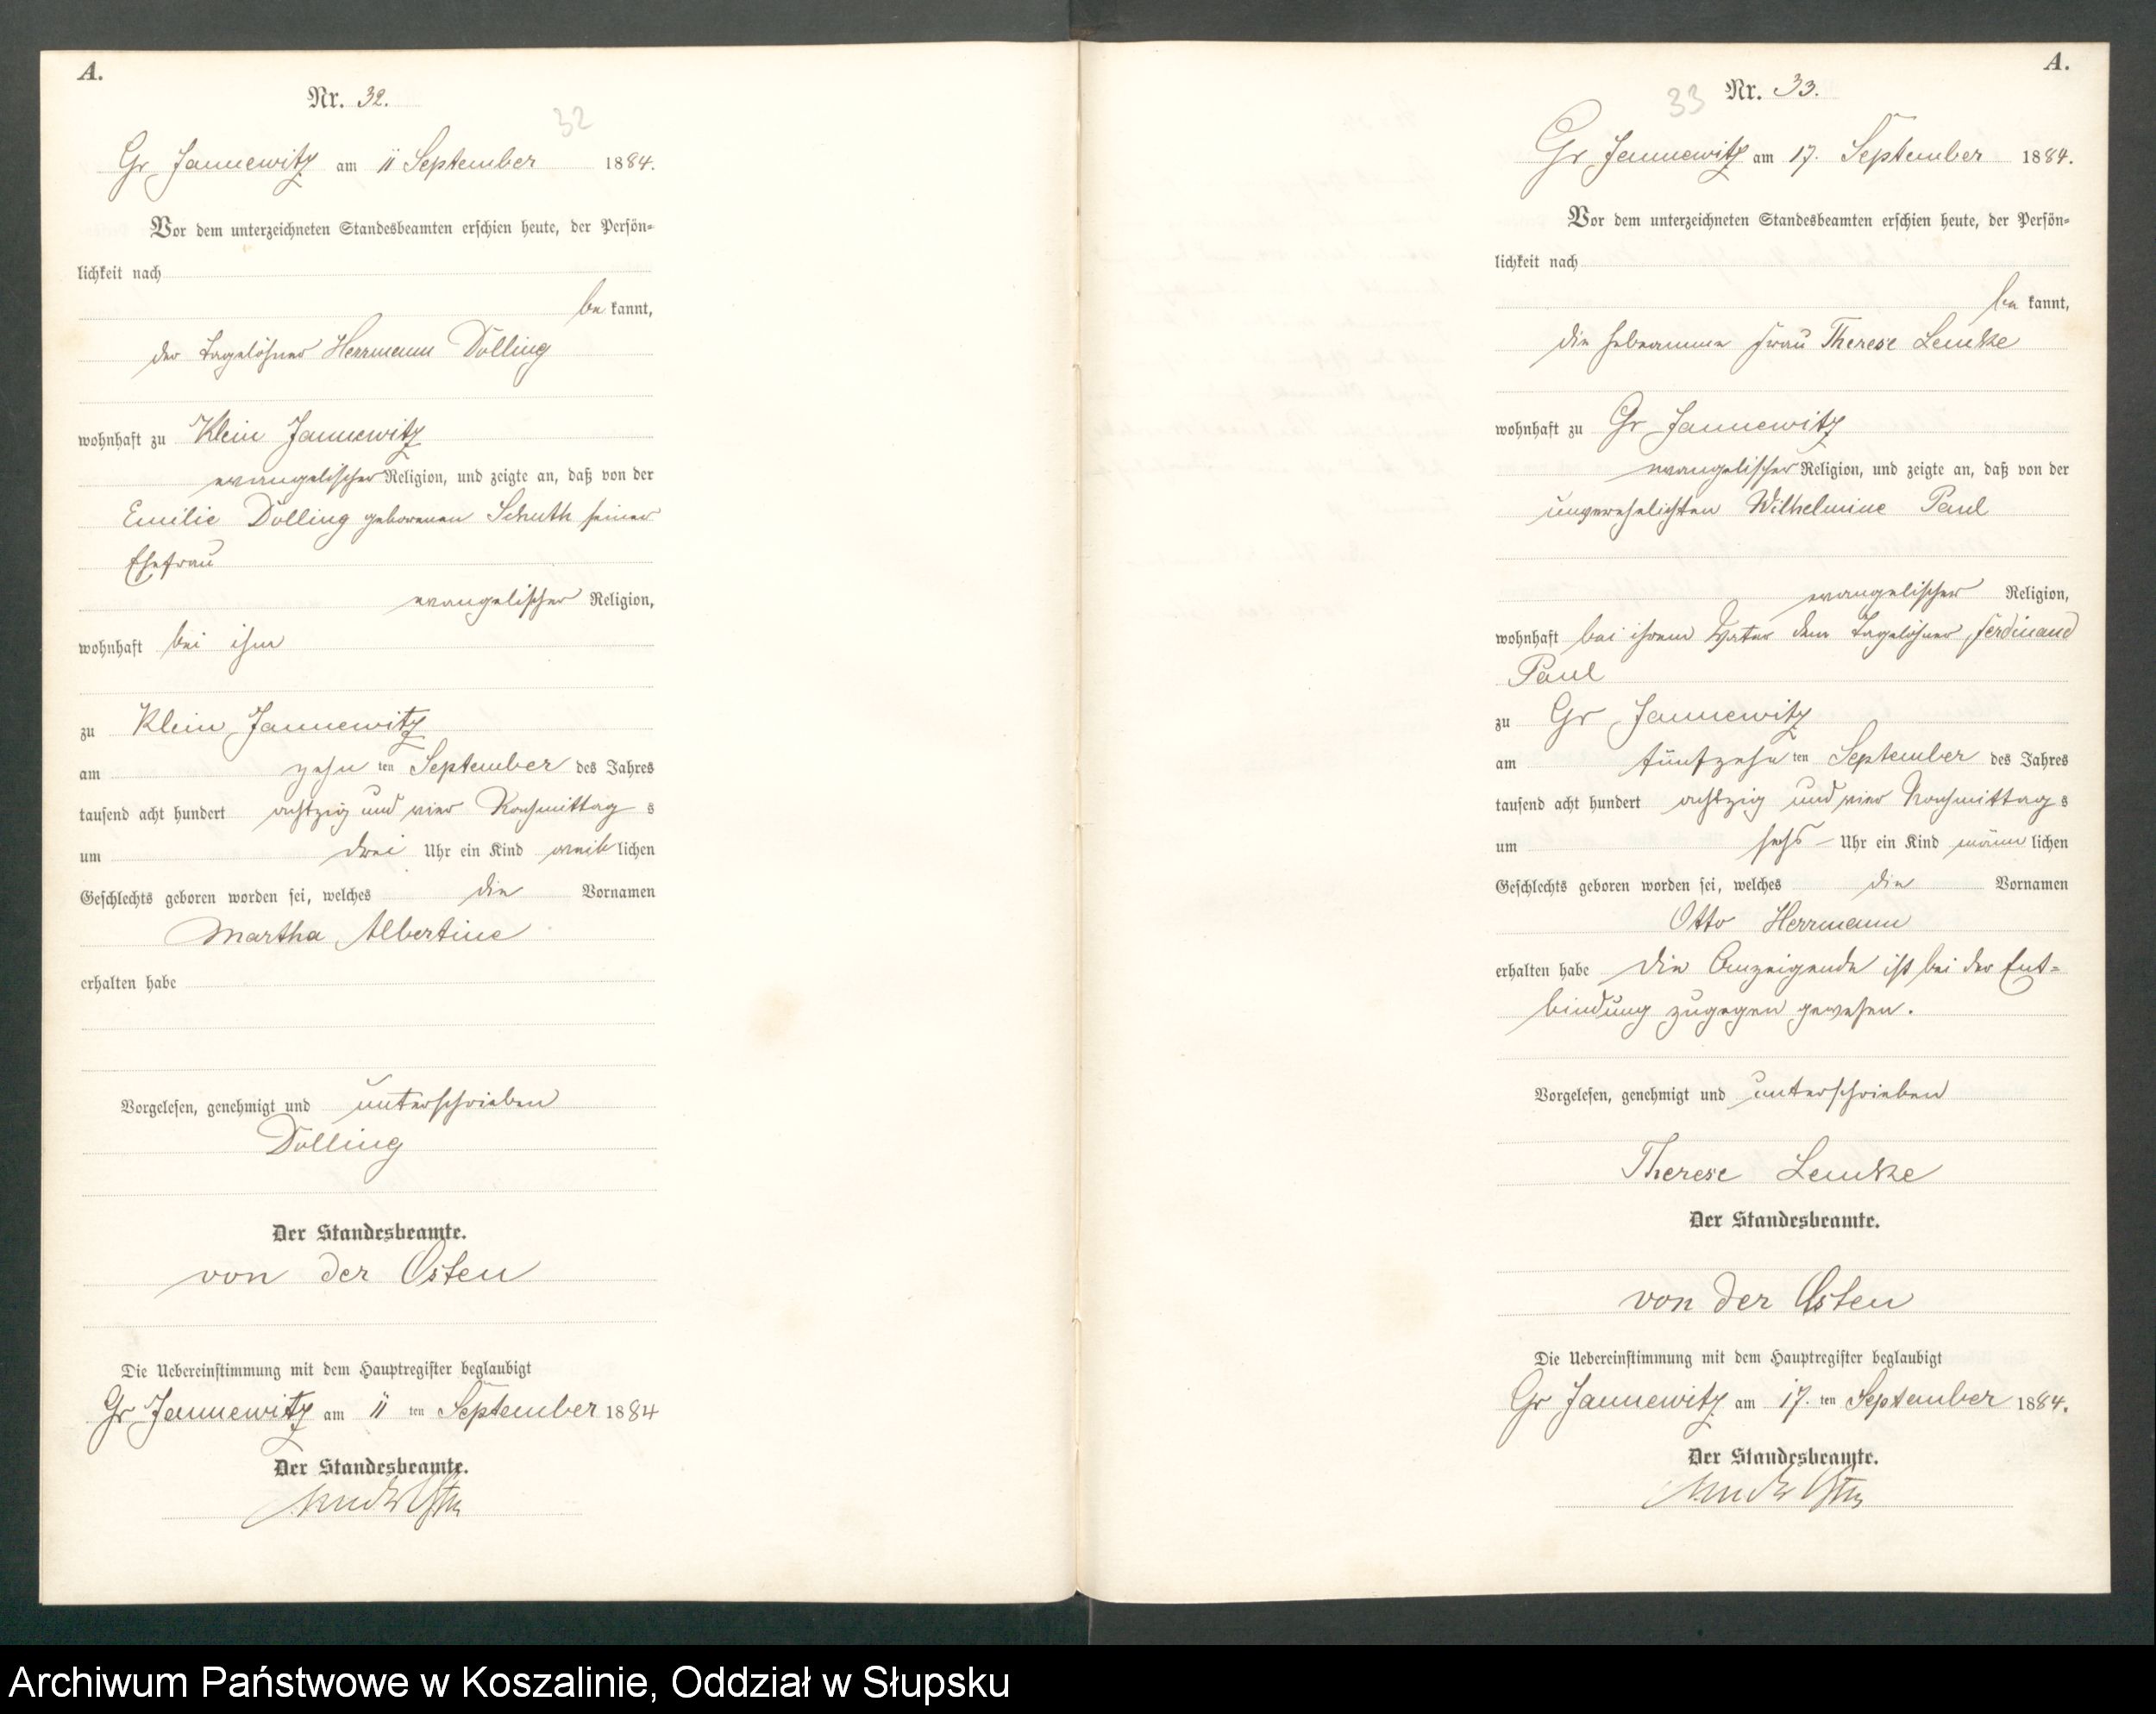 A.
Nr. 32.
32
Gr Jannewitz am 11 September 1884.
Vor dem unterzeichneten Standesbeamten erschien heute, der Persön-
lichkeit nach
be kannt,
der Tagelöhner Herrmann Dolling
wohnhaft zu Klein Jannewitz
evangelischer Religion, und zeigte an, daß von der
Emilie Dolling geborenen Schuth seiner
Ehefrau
evangelischer Religion,
wohnhaft bei ihm
zu Klein Jannewitz
am zehn ten September des Jahres
tausend acht hundert achtzig und vier Nachmittag s
um drei Uhr ein Kind weib lichen
Geschlechts geboren worden sei, welches die Vornamen
Martha Albertine
erhalten habe
Vorgelesen, genehmigt und unterschrieben
Dolling
Der Standesbeamte.
von der Osten
Die Uebereinstimmung mit dem Hauptregister beglaubigt
Gr Jannewitz am 11 ten September 1884
Der Standesbeamte.
von der Osten
A.
33 Nr. 33.
Gr Jannewitz am 17. September 1884.
Vor dem unterzeichneten Standesbeamten erschien heute, der Persön-
lichkeit nach
be kannt,
die Hebeamme Frau Therese Lemke
wohnhaft zu Gr Jannewitz
evangelischer Religion, und zeigte an, daß von der
unverehelichten Wilhelmine Paul
evangelischer Religion,
wohnhaft bei ihrem Vater dem Tagelöhner Ferdinand
Paul
zu Gr Jannewitz
am fünfzehn ten September des Jahres
tausend acht hundert achtzig und vier Nachmittag s
um sechs Uhr ein Kind männ lichen
Geschlechts geboren worden sei, welches die Vornamen
Otto Herrmann
erhalten habe Die Anzeigende ist bei der Ent-
bindung zugegen gewesen.
Vorgelesen, genehmigt und unterschrieben
Therese Lemke
Der Standesbeamte.
von der Osten
Die Uebereinstimmung mit dem Hauptregister beglaubigt
Gr Jannewitz am 17. ten September 1884.
Der Standesbeamte.
von der Osten
Archiwum Państwowe w Koszalinie, Oddział w Słupsku